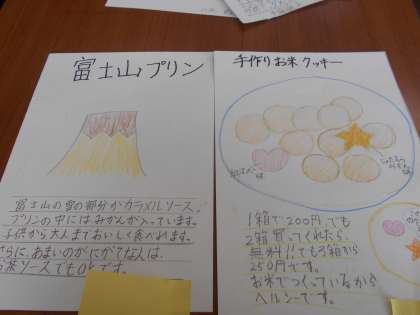 富士山プリン
富士山の雪の部分がカラメルソース。
プリンの中にはみかんが入っています。
子供から大人までおいしく食べれます。
さらに、あまいのがにがてな人は、
お茶ソースでもOKです。
手作りお米クッキー
1箱で200円でも
2箱買ってくれたら、
無料!!でも3箱から
250円です。
お米でつくっているから
ヘルシーです。